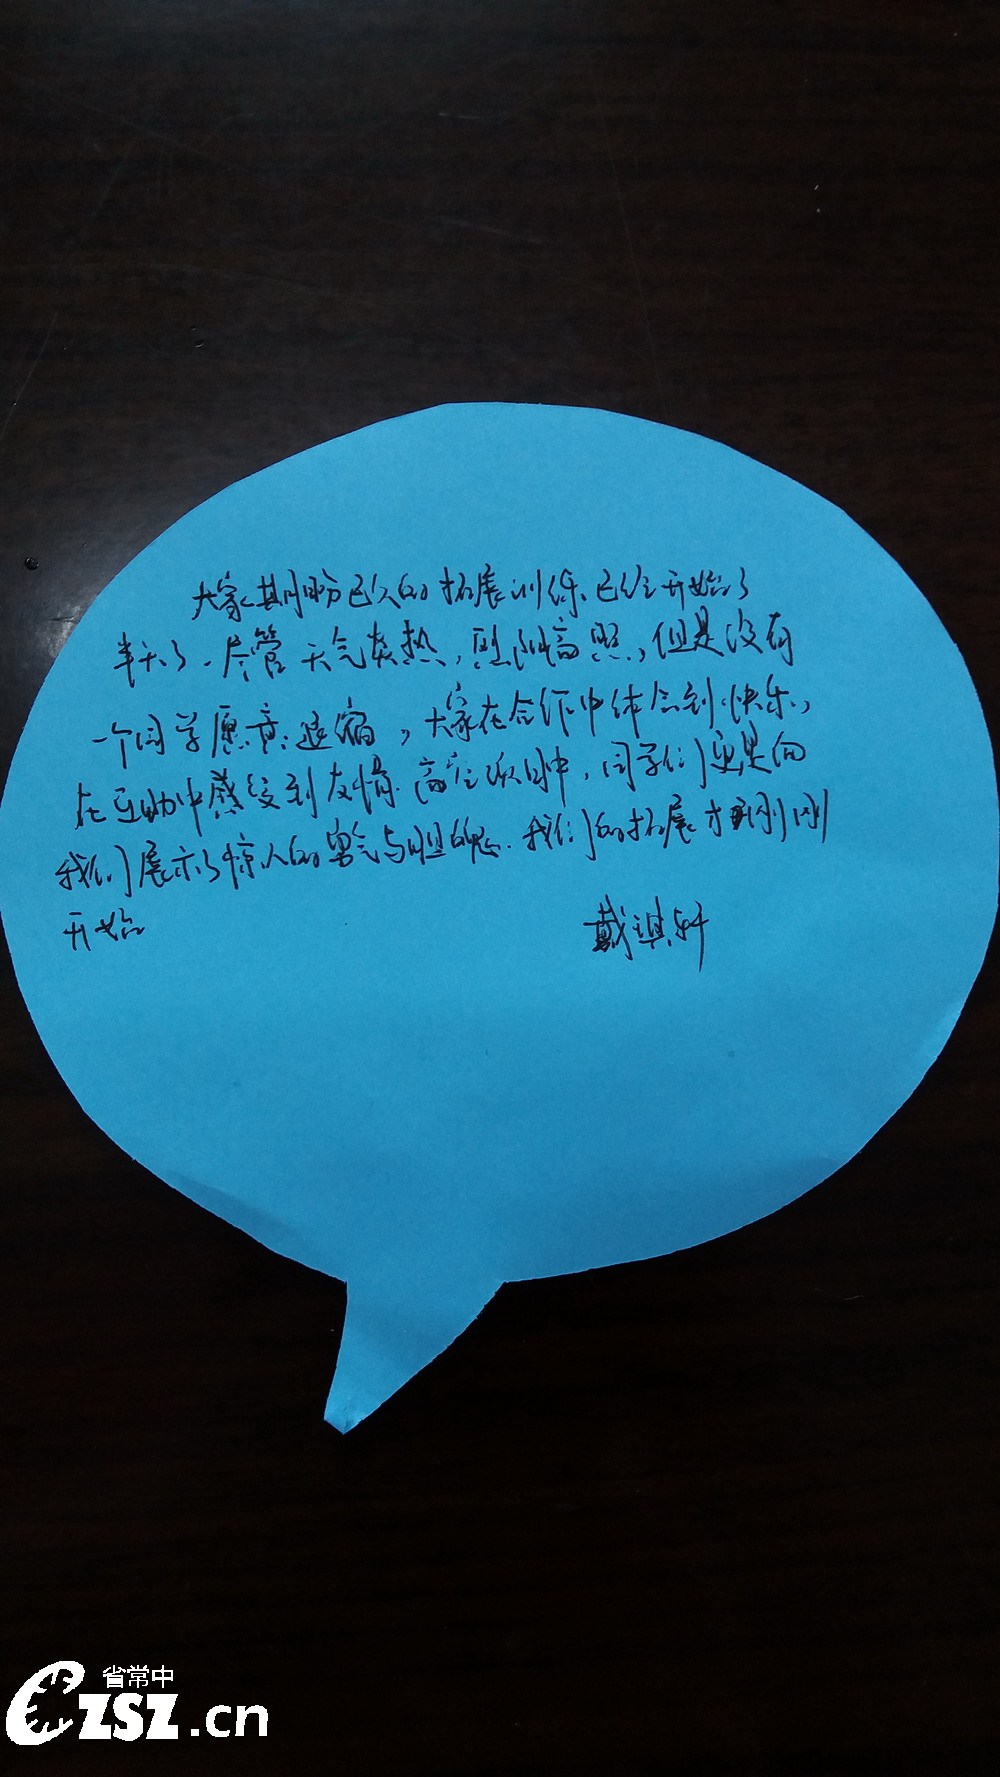 大家期盼已久的拓展训练已经开始了
半天了。尽管天气炎热，烈阳高照，但是没有
一个同学愿意退缩，大家在合作中体会到快乐，
在互助中感受到友情。高空项目中，同学们更是向
我们展示了惊人的勇气与胆魄。我们的拓展才刚刚
开始
戴祺轩
省常中
CZSZ.cn